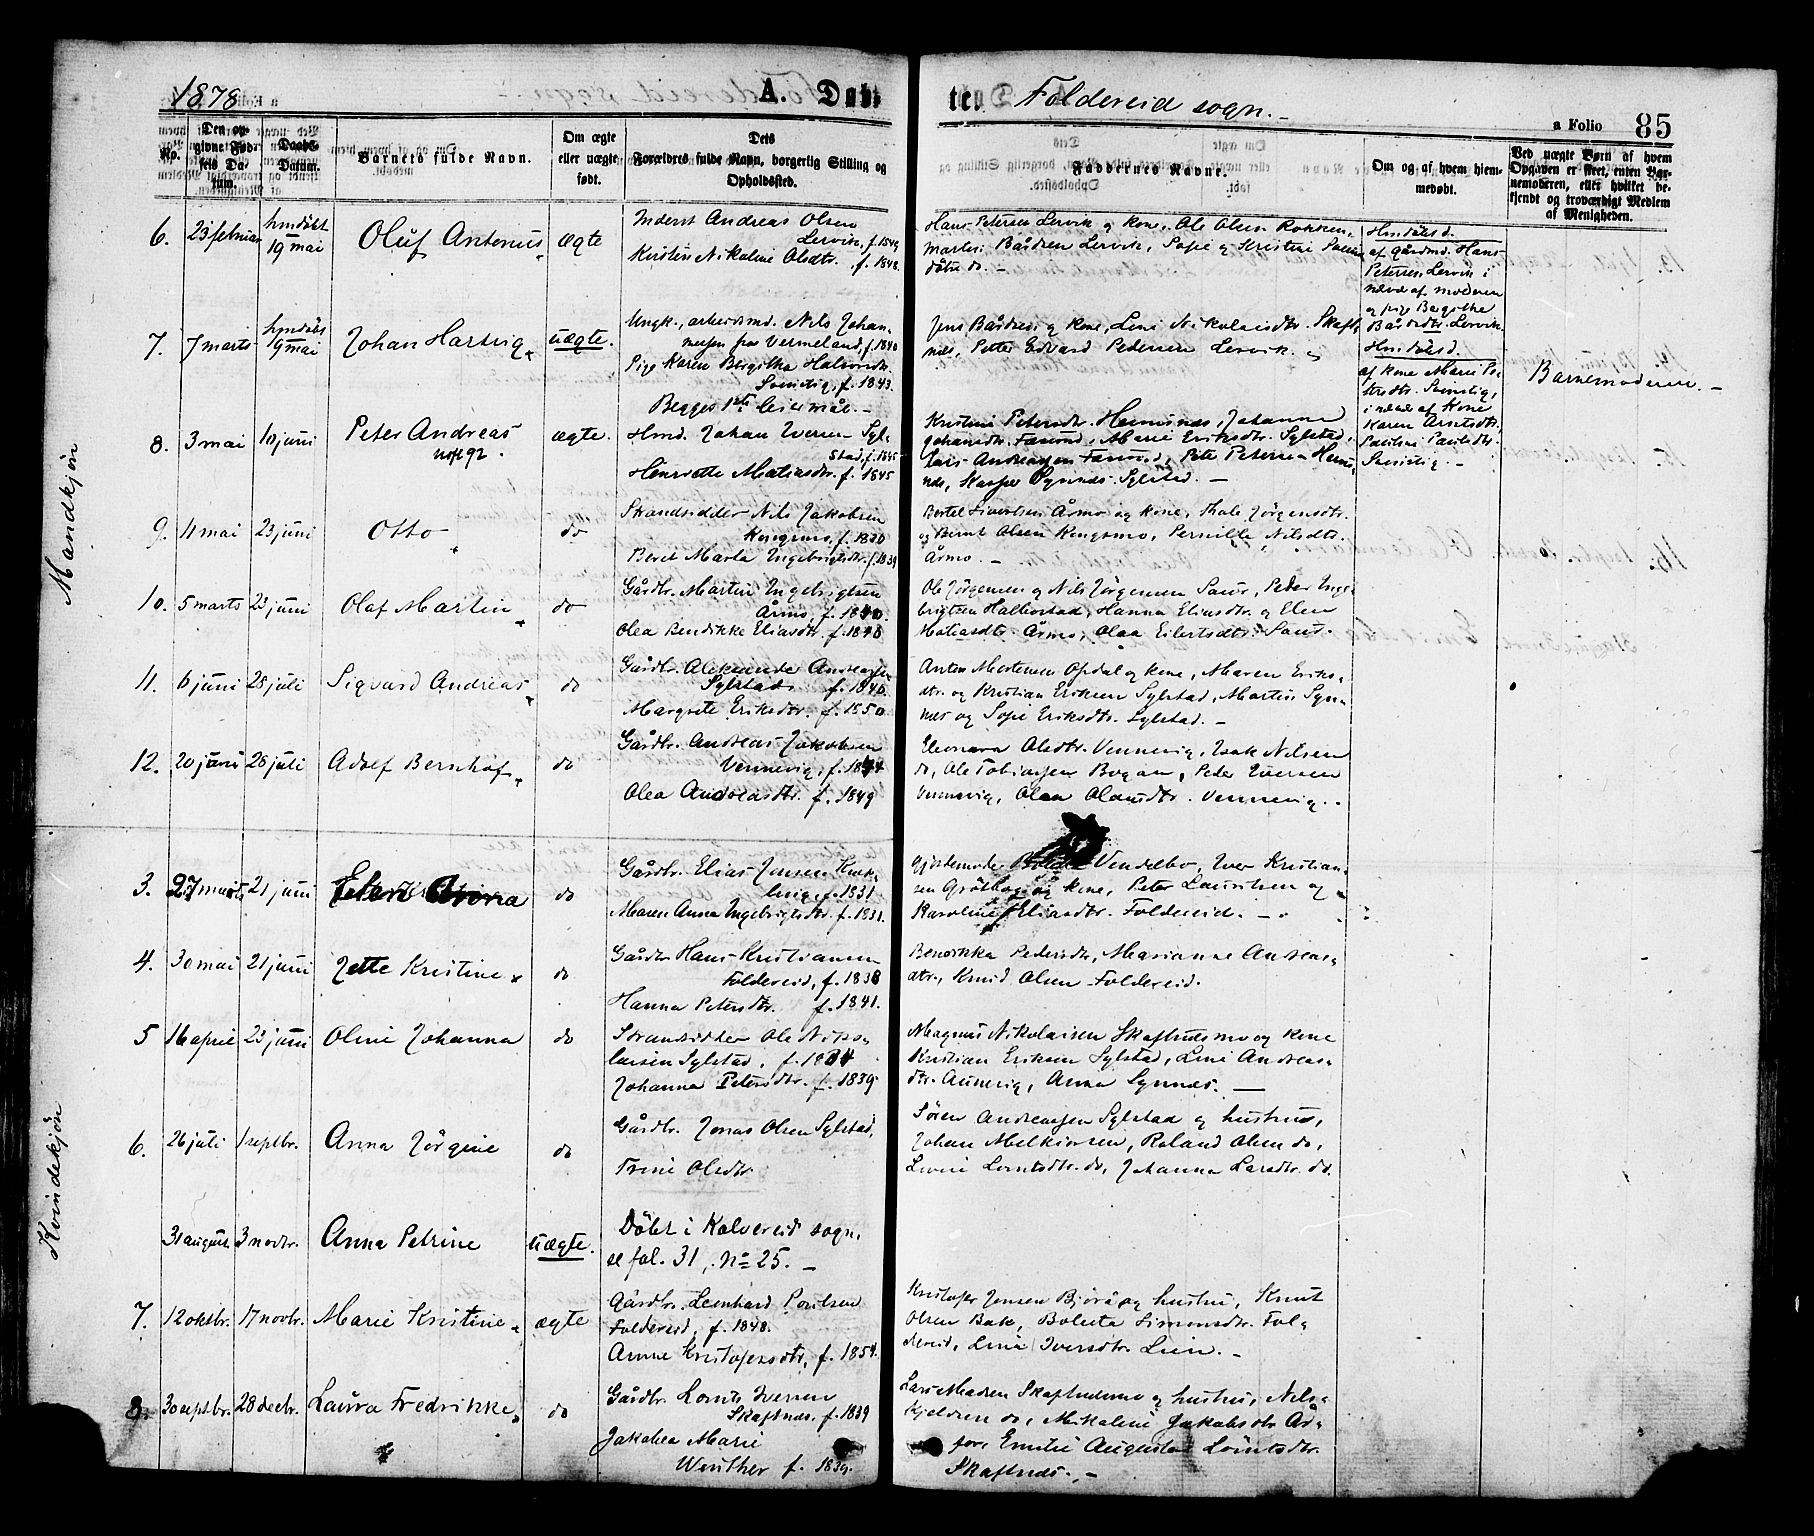 1878
A. Døb-
te i Foldereid sogn.
a Folio 85
No.
Den opgivne Fødsels Datum.
Daabs-Datum.
Barnets fulde Navn.
Om ægte eller uægte født.
Dets Forældres fulde Navn, borgerlig Stilling og Opholdssted.
Faddernes Navne.
Om og af hvem hjemmedøbt.
Ved uægte Børn af hvem Opgaven er skeet, enten Barnemoderen, eller hvilket bekjendt og troværdigt Medlem af Menigheden.
Mandkjøn
6. 23 februar hmdøbt 19 mai Oluf Antonius ægte
Inderst Andreas Olsen
Lervik, f. 1849
Kirstin Nikoline Olsdtr. f. 1848.
Hans Petersen Lervik og kone, Ole Olsen
Bårdsen Lervik, Sofie og Kristine
døtre do. -
Hmdøbt d.
af gårdmd. Hans
Petersen Lervik i
nærvær af moderen
og pige Bergitha
Bårdsdtr. Lervik.
7. 7 marts hmdøbt 9 mai Johan Hartvig uægte.
Ungk., arbeidsmd. Nils Johan-
nesen fra Vermeland, f. 1840
Pige Karen Bergitha Halvorsdtr.
f. 1843.
Begges 1ste leiermål. -
Jens Bårdsen og kone, Lina Nikolaisdtr. Skaft-
næs, Petter Edvard Pedersen Lervik.
Hmdøbt d.
af kone Marie Pe-
tersdtr.
i nærvær af Kone
Karen Arntsdtr.
Paulsdtr.
Barnemoderen. -
8. 3 mai 10 juni Peter Andreas ægte.
Hmd. Johan Iversen Syl-
stad, f. 1845
Henriette Matiasdtr. f. 1845
Kristine Petersdtr. Johanna
Johansdtr. Marie Eriksdtr. Sylstad,
Lars Andreassen Peter Petersen
Kasper Synnæs. Sylstad. -
9. 11 mai 23 juni Otto do
Strandsidder Nils Jakobsen
Kongsmo, f. 1830
Beret Marta Ingebrigtsdtr. f. 1839
Bertel Årmo og kone, Jørgensdtr.
og Bernt Olsen Kongsmo, Pernille Nilsdtr.
Årmo. -
10. 5 marts 23 juni Olaf Martin do
Gårdbr. Martin Ingebrigtsen
Årmo, f. 1840.
Olea Bendikke Eliasdtr. f. 1840
Ole Jørgensen og Nils Jørgensen Peter Inge-
brigtsen Halbostad, Hanna Eliasdtr. og Elen
Matiasdtr. Årmo, Olaa Eilertsdtr.
11. 6 juni 28 juli Sigvard Andreas do
Gårdbr. Aleksander Andreassen
Sylstad f. 1840
Margrete Eriksdtr. f. 1850
Anton Mortensen Opdal og kone, Maren Eriks-
dtr. og Kristian Eriksen Sylstad, Martin Syn-
næs og Sofie Eriksdtr. Sylstad. -
12. 20 juni 28 juli Adolf Bernhof do
Gårdbr. Andreas Jakobsen
Vennevig, f. 1844
Olea Andreasdtr. f. 1849
Eleonora Olsdtr. Vennevig, Isak Nilsen
do, Ole Tobiassen Bogan, Peter Iversen
Vennevig, Olaa Olausdtr. Vennevig.
Kvindekjøn
3. 27 marts 21 juni do
Gårdbr. Elias Jensen
f. 1831.
Maren Anna Ingebrigtsdtr. f. 1831.
Gjordemoder Vendelbo, Iver Kristian-
sen og kone, Peter Lauritsen og
Karoline Eliasdtr. Foldereid. -
4. 30 mai 21 juni Jette Kristine do
Gårdbr. Hans Kristiansen
Foldereid, f. 1838
Hanna Petersdtr. f. 1841.
Bendikka Pedersdtr, Marianne Andreas-
dtr., Knud Olsen Foldereid.
5 16 april 23 juni Oline Johanna do
Strandsidder Ole Niko-
laisen Sylstad, f. 1834
Johanna Petersdtr. f. 1839.
Magnus Nikolaisen Skaftnæsmo og kone
Kristian Eriksen Sylstad, Lina Andreas-
dtr. Aunevig, Anna Synnæs. -
6. 26 juli 1 septbr. Anna Jørgine do
Gårdbr. Jonas Olsen Sylstad,
Trine Olsdtr.
Søren Andreassen Sylstad og hustru,
Johan Melkiorsen, Roland Olsen do,
Lovise Lorntsdtr. do, Johanna Larsdtr. do.
31 august 3 novbr. Anna Petrine uægte.
Døbt i Kolvereid sogn,
se fol. 31, No 25. -
7. 12 oktbr. 17 novbr. Marie Kristine ægte
Gårdbr. Leonhard Poulsen
Foldereid, f. 1848.
Anne Kristofersdtr, f. 1854.
Kristofer Jensen Bjørå og hustru, Knut
Olsen Bak, Boletta Simonsdtr. Fol-
dereid, Lina Iversdtr. Lien. -
8. 30 septbr. 28 decbr. Laura Fredrikke do
Gårdbr. Lornts Iversen
Skaftnæs, f. 1839
Jakobea Marie
Winther f. 1839.
Lars Madsen Skaftnæsmo og hustru, Nils
Kjeldsen do, Nikoline Jakobsdtr.
Emilie Augusta Lorntsdtr.
Skaftnæs. -